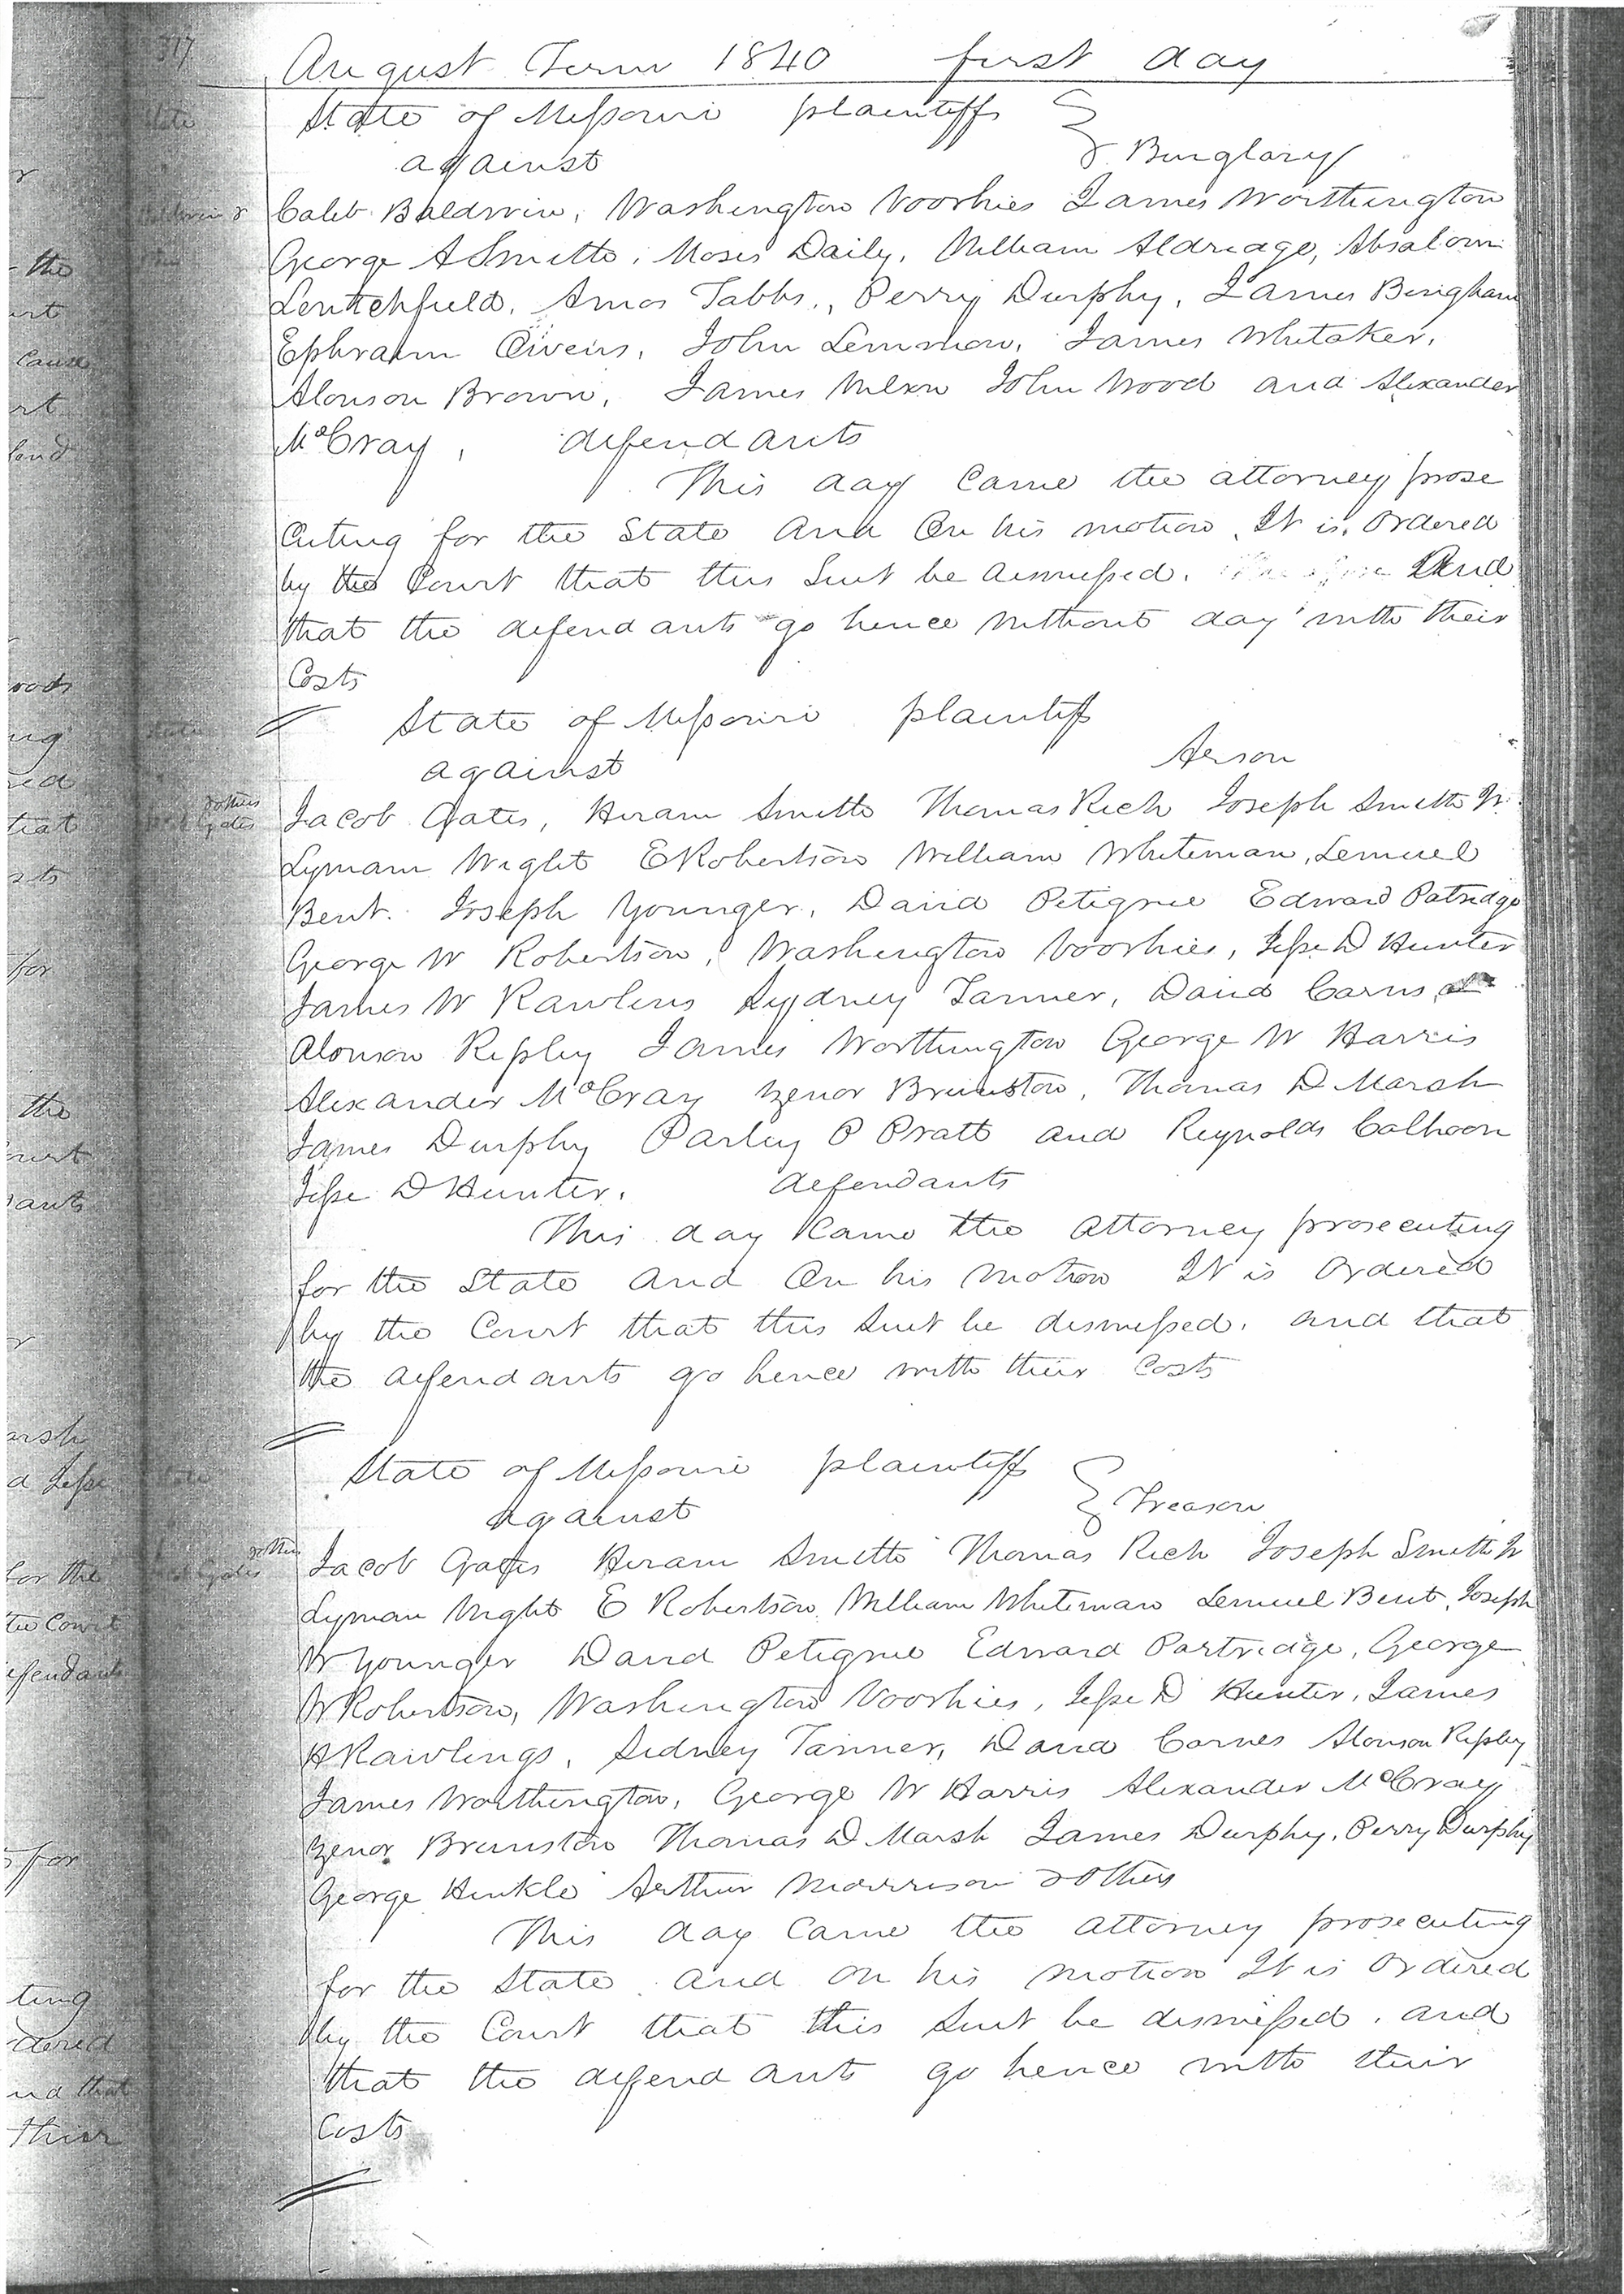 317
August Term 1840 first day
State of Missouri plaintiffs
against Burglary
Caleb Baldwin, Washington Voorhies James Worthington
George A Smith, Moses Daily, William Aldredge, Absalom
Amos Tabbs, Perry Durphy, James Bingham
Ephraim Owens, John Lemmon, James Whitaker,
Alonson Brown, James John Wood and Alexander
McCray, defendants
This day came the attorney prose
cuting for the State and On his motion It is Ordered
by the Court that this Suit be dismissed. And
that the defendants go hence without day with their
Costs
State of Missouri plaintiff
against Arson
Jacob Gates, Hiram Smith Thomas Rich Joseph Smith Jr.
Lyman Wight E Robertson William Whiteman, Lemuel
Bent. Joseph Younger, David Petigrue Edward Patridge
George W Robertson, Washington Voorhies, Jesse D Hunter
James W Rawlins Sydney Tanner, David Carns
Alonson Ripley James Worthington George W Harris
Alexander McCray Zenor Brunston, Thomas D Marsh
James Durphy Parley P Pratt and Reynolds Calhoon
Jesse D Hunter. defendants
This day Came the attorney prosecuting
for the State and On his motion It is Ordered
by the Court that this Suit be dismissed. and that
the defendants go hence with their Costs
State of Missouri plaintiff
against Treason
Jacob Gates Hiram Smith Thomas Rich Joseph Smith Jr
Lyman Wight E Robertson William Whiteman Lemuel Bent, Joseph
W Younger David Petigrue Edward Partridge, George
W Robertson, Washington Voorhies, Jesse D Hunter, James
H Rawlings, Sidney Tanner, David Carnes Alonson Ripley
James Worthington, George W Harris Alexander McCray
Zenor Brunston Thomas D Marsh James Durphy, Perry Durphy
George Hinkle Arthur Morrison & others
This day Came the attorney prosecuting
for the State and On his motion It is Ordered
by the Court that this Suit be dismissed. and
that the defendants go hence with their
Costs